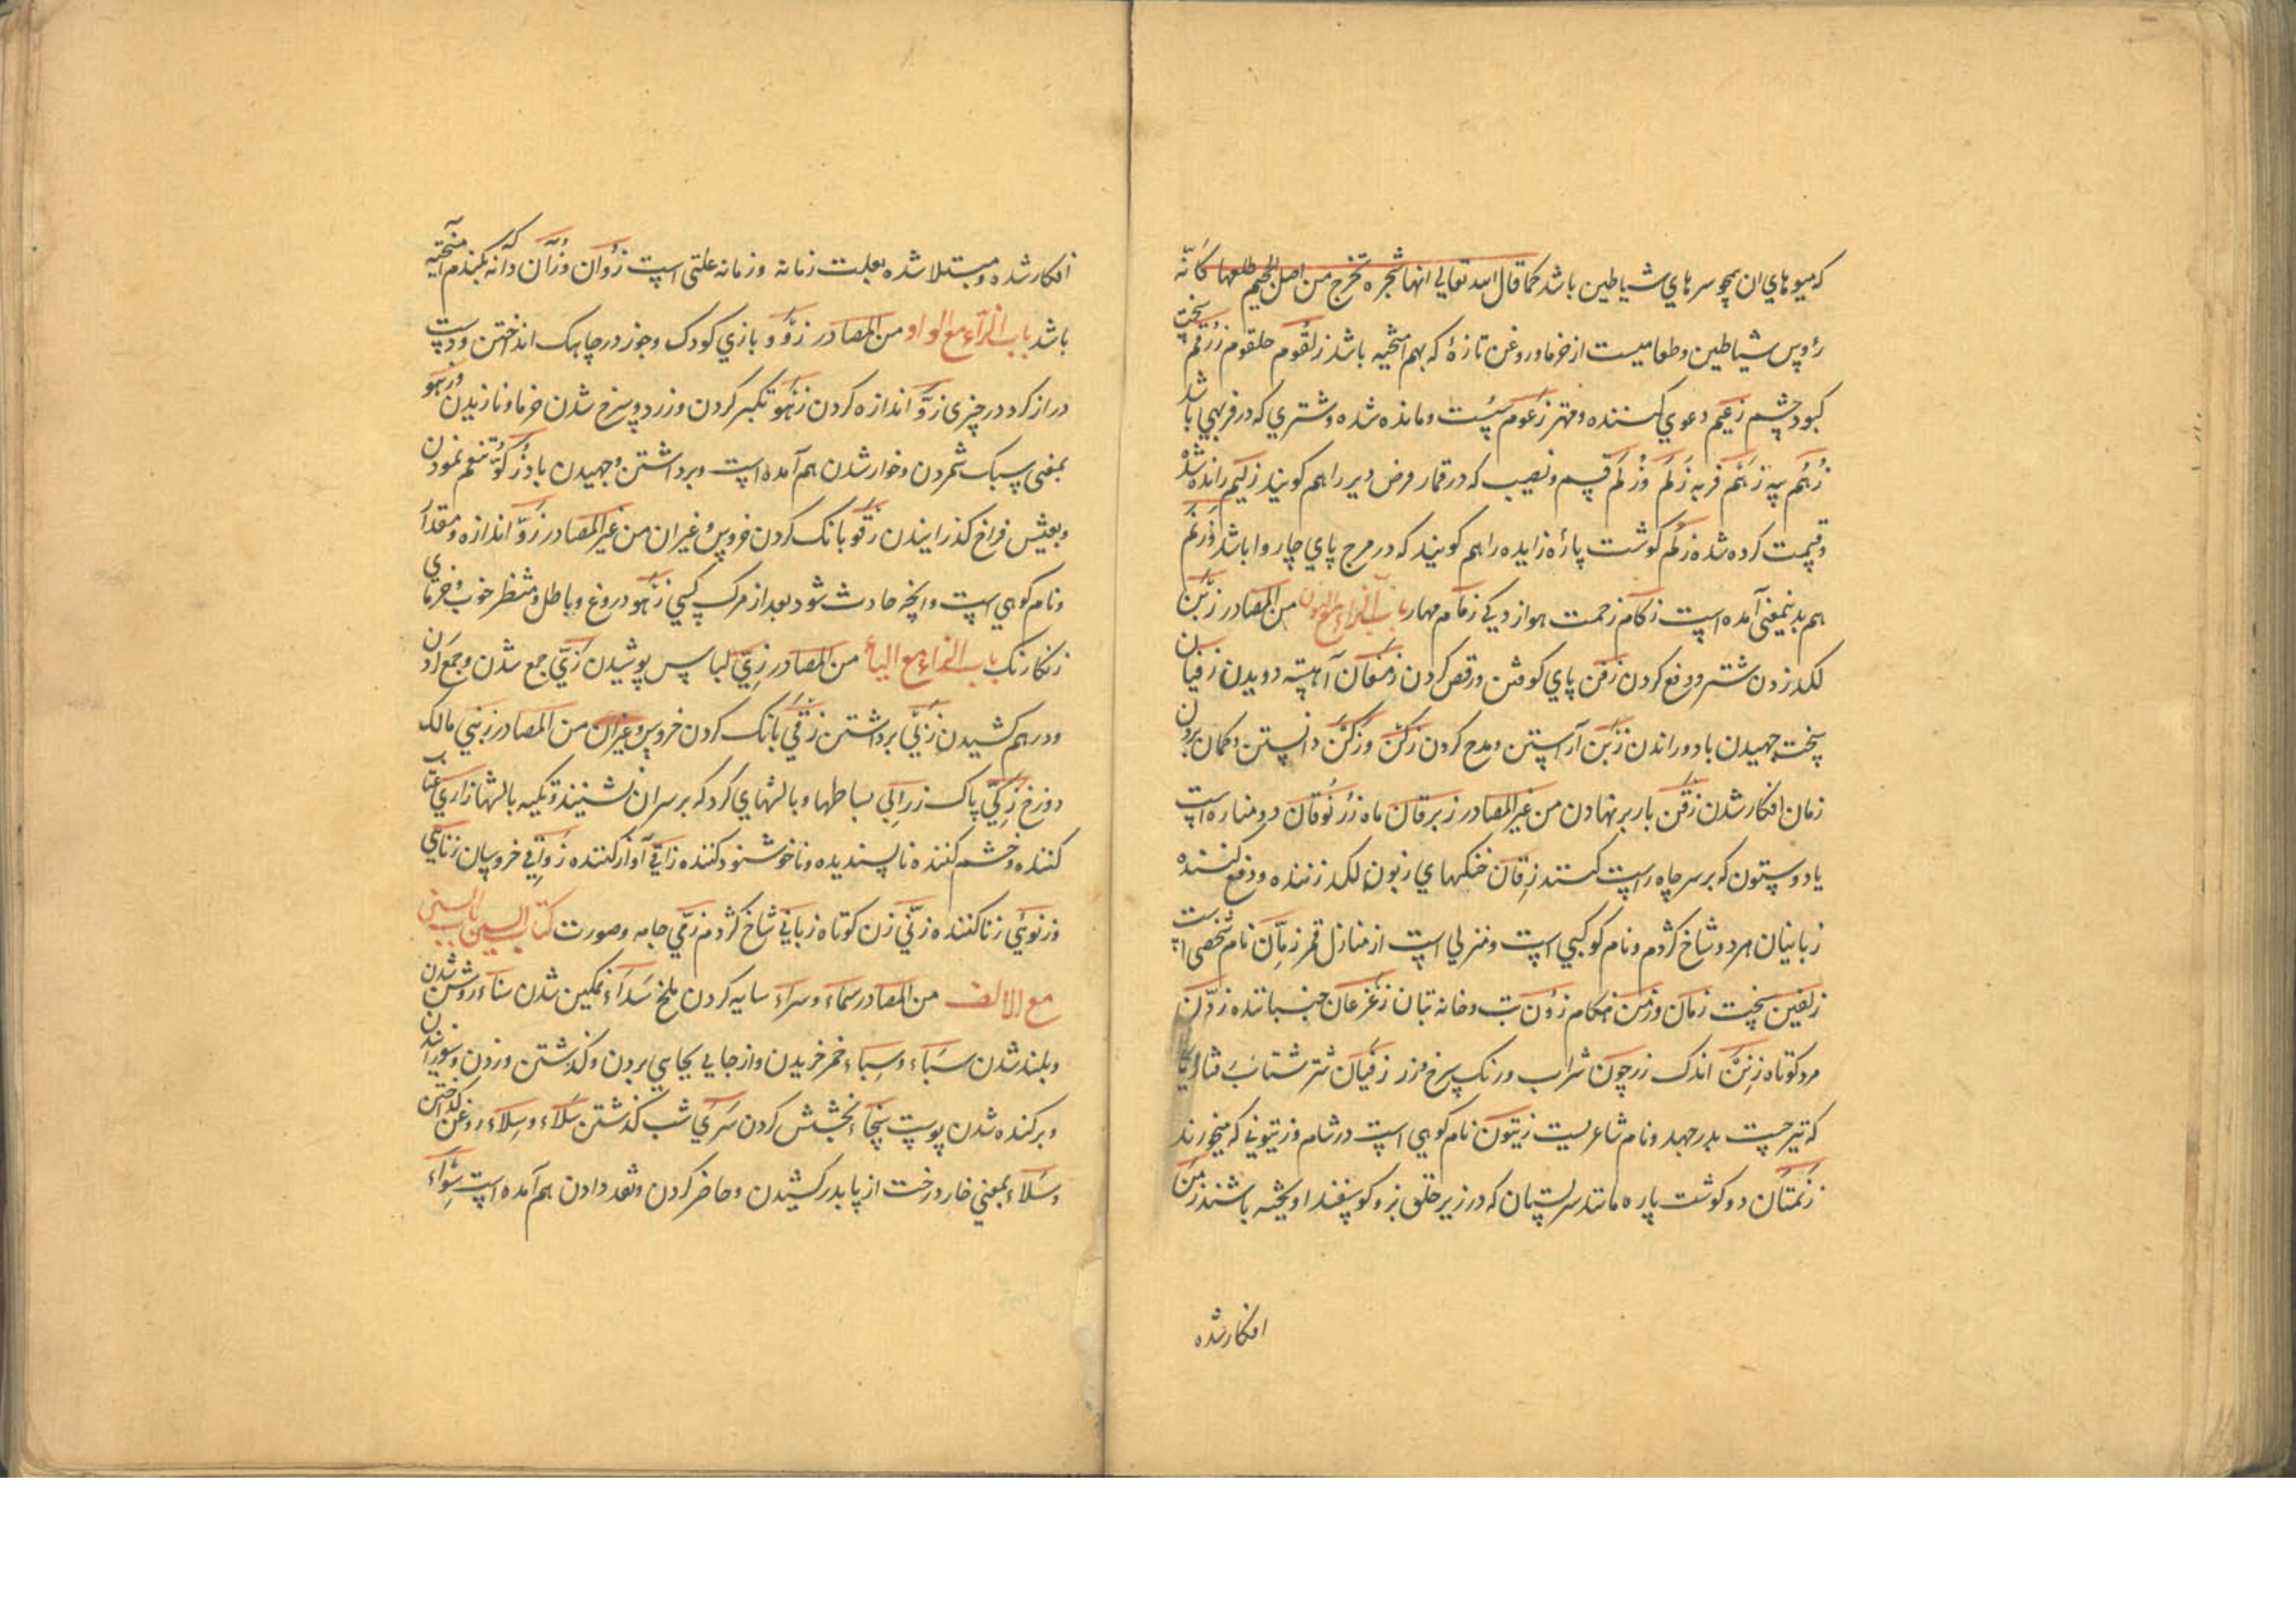 که میوهای ان همچو سرهاي شیاطین باشد کما قال الله تعالي انها شجرة تخرج من اصل الجحیم طلعها کانّه
رؤس شیاطین و طعامیست از خرما و روغن تازۀ که بهم امیخته باشد زلقوم حلقوم زرقم سخت
کبود چشم زعیم دعوي کننده و مهتر زعوم سست و مانده شده و شتري که در فربهي باشد
زُهُم پیه زَهِم فربه زَلَم و زُلَم قسم و نصیب که در قمار فرض دیر را هم کویند زلیم رانده شده
و قیمت کرده شده زلم کوشت پارۀ زایده را هم کویند که در مرج پاي چاروا باشد
هم بدینمعنی آمده است زکام زحمت هوازدیکي زمام مهار باب الزاء مع النون من المصادر زبن
لکد زدن شتر و دفع کردن زفن پاي کوفتن و رقص کردن آهسته دویدن زفیان
سخت جهیدن باد و راندن زین آراستن و مدح کردن زکن و زکن دانستن و کمان بردن
زمان افکار شدن زقن بار بر نهادن من غیر المصادر زبرقان ماه زرنوقان دو مناره است
یا دو ستون که بر سر چاه راست کنند زقان خنکهاي زبون لکد زننده و دفع کننده
زبانیان هر دو شاخ کژدم و نام کوکبي است و منزلي است از منازل قمر زمّان نام شخصی است
زفین سخت زمان و زمن هنکام زون بت و خانه بتان زعزعان جنباننده
مرد کوتاه اندک زرجون شراب و رنک سرخ و زر زفیان شتر شتاب
که تیر چست بدر جهد و نام شاعریست زیتون نام کوهي است در شام و زیتوني که میخورند
زنمتان دو کوشت پاره مانند سر پستان که در زیر حلق بز و کوسفند اویخته باشند زمن
افکار شده
افکار شده و مبتلا شده بعلت زمانه و زمانه علتی است زوان و زؤان دانه که بکندم آمیخته
باشد باب الزاء مع الواو من المصادر زدو بازي کودک و جوز در چاهک انداختن و دست
دراز کردن در چیزی زوّ اندازه کردن زهو تکبر کردن و زرد و سرخ شدن خرما و نازیدن و زهو
بمعنی سبک شمردن و خوار شدن هم آمده است و برداشتن و جهیدن باد زکو تنعم نمودن
و بعیش فراخ کذرانیدن زقو بانک کردن خروس و غیر ان من غیر المصادر زوّ اندازه و مقدار
و نام کوهي است و انچه حادث شود بعد از مرک کسي زهو دروغ و باطل و منظر خوب و خرماي
رنکارنک باب الزاء مع الیاء من المصادر زيّ لباس پوشیدن زيّ جمع شدن و جمع کردن
و درهم کشیدن زبي برداشتن زقي بانک کردن خروس و غیر ان من المصادر زبني مالک
دوزخ زکيّ پاک زرابي بساطها و بالشهاي کرد که بر سر ان نشینند و تکیه بالشها زاري عتاب
کننده و خشم کننده ناپسندیده و ناخوشنود کننده زاقي آواز کننده زواقي خروسان زناءي
و زنوئي زنا کننده زنّي زن کوتاه زباني شاخ کژدم زيّ جامه و صورت کتاب السین باب السین
مع الالف من المصادر سماء و سراء سایه کردن ملخ سدآء نمکین شدن سناء روشن شدن
و بلند شدن سَباء و سِباء خمر خریدن و از جایي بجایي بردن و کذشتن و زدن و سوزاندن
و برکنده شدن پوست سخاء بخشش کردن سري شب کذشتن سَلاء و سِلاء روغن کداختن
و سلاء بمعنی خار درخت از پا بدر کشیدن و حاضر کردن و نقد دادن هم آمده است سِواء